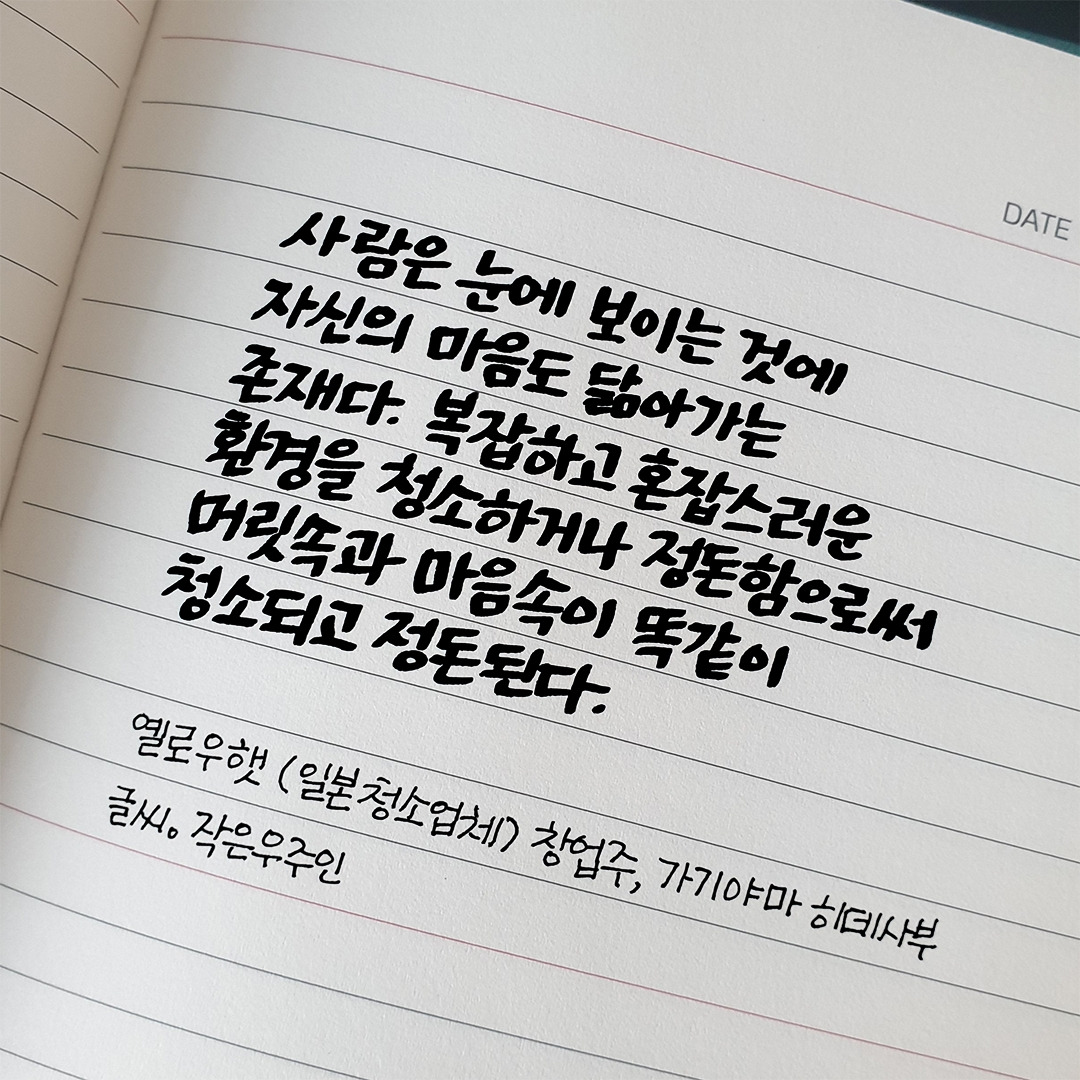 DATE
사람은 눈에 보이는 것에
자신의 마음도 닮아가는
존재다. 복잡하고 혼잡스러운
환경을 청소하거나 정돈함으로써
머릿속과 마음속이 똑같이
청소되고 정돈된다.
옐로우햇 (일본청소업체) 창업주, 가기야마 히데사부
글씨. 작은우주인